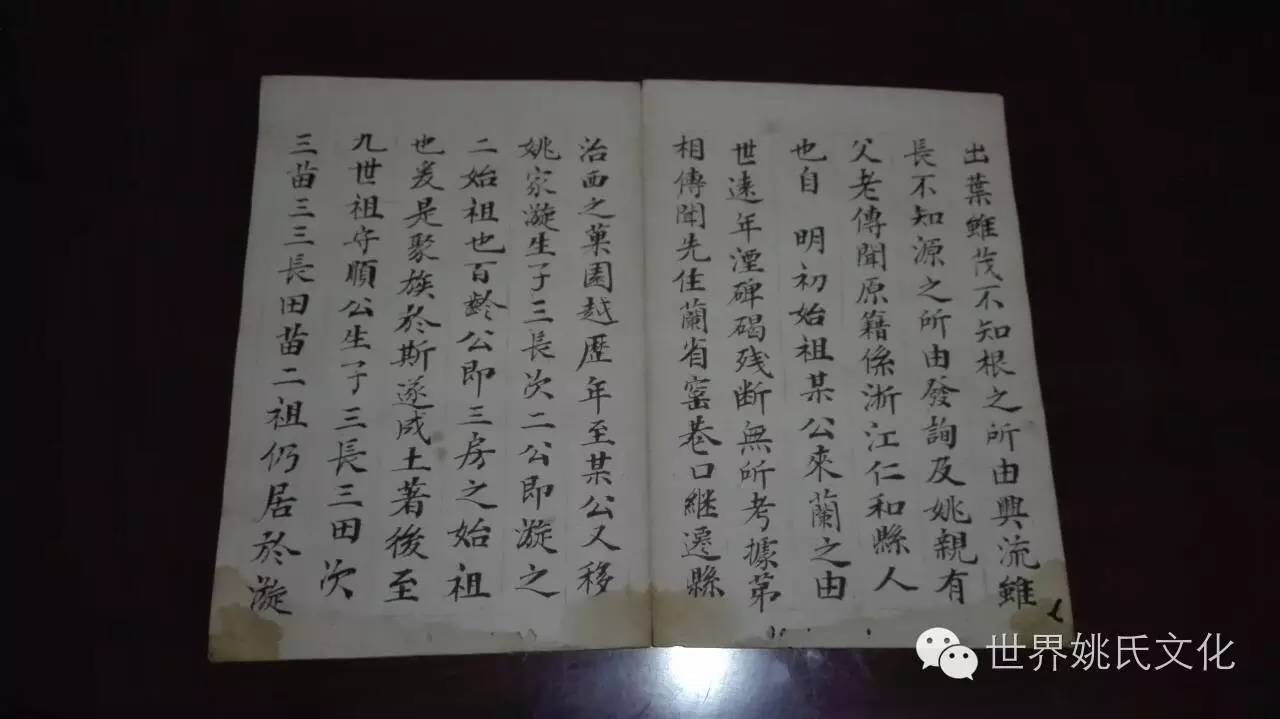 出葉雖茂不知根之所由興流雖
長不知源之所由發詢及姚親有
父老傳聞原籍係浙江仁和縣人
也自 明初始祖某公來蘭之由
世遠年湮碑碣残断無所考據第
相傳聞先住蘭省窰巷口継遷縣
治西之菓園越歷年至某公又移
姚家漩生子三長次二公即漩之
二始祖也百齡公即三房之始祖
也爰是聚族於斯遂成土著後至
九世祖守順公生子三長三田次
三苗三三長田苗二祖仍居於漩
世界姚氏文化